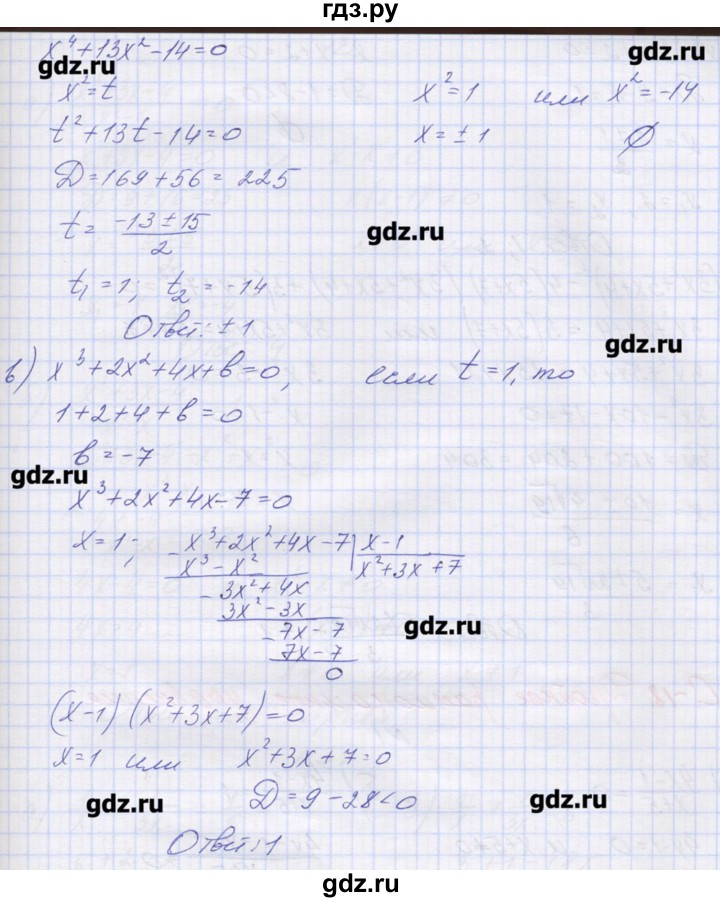 гдз.ру
x⁴+13x²-14=0
gdz.ru
gdz.ru
x²=t
x²=1 или x²=-14
t²+13t-14=0
x=±1 ∅
D=169+56=225
t=(-13±15)/2
gdz.ru
t₁=1; t₂=-14
Ответ: ±1
gdz.ru
в) x³+2x²+4x+в=0, если t=1, то
1+2+4+в=0
в=-7
gdz.ru
x³+2x²+4x-7=0
x=1; x³+2x²+4x-7 | x-1
x³-x² x²+3x+7
-3x²+4x
3x²-3x
gdz.ru
-7x-7
7x-7
0
(x-1)(x²+3x+7)=0
x=1 или x²+3x+7=0
gdz.ru
D=9-28<0
gdz.ru
Ответ: 1
gdz.ru